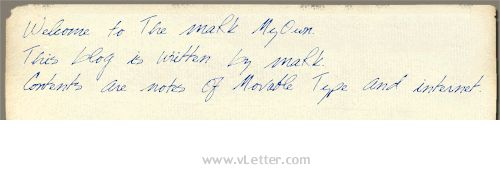 Welcome to The maRk MyOwn.
This blog is written by maRk.
Contents are notes of Movable Type and internet.
www.vLetter.com